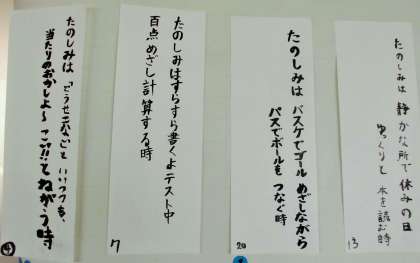 たのしみは「どうせ出ない」と いいつつも、
当たりのおかしよ〜こい!!とねがう時
4
たのしみはすらすら書くよテスト中
百点めざし計算する時
7
たのしみは バスケでゴール めざしながら
パスでボールも つなぐ時
20
たのしみは 静かな所で 休みの日
ゆっくりと 本を読む時
13